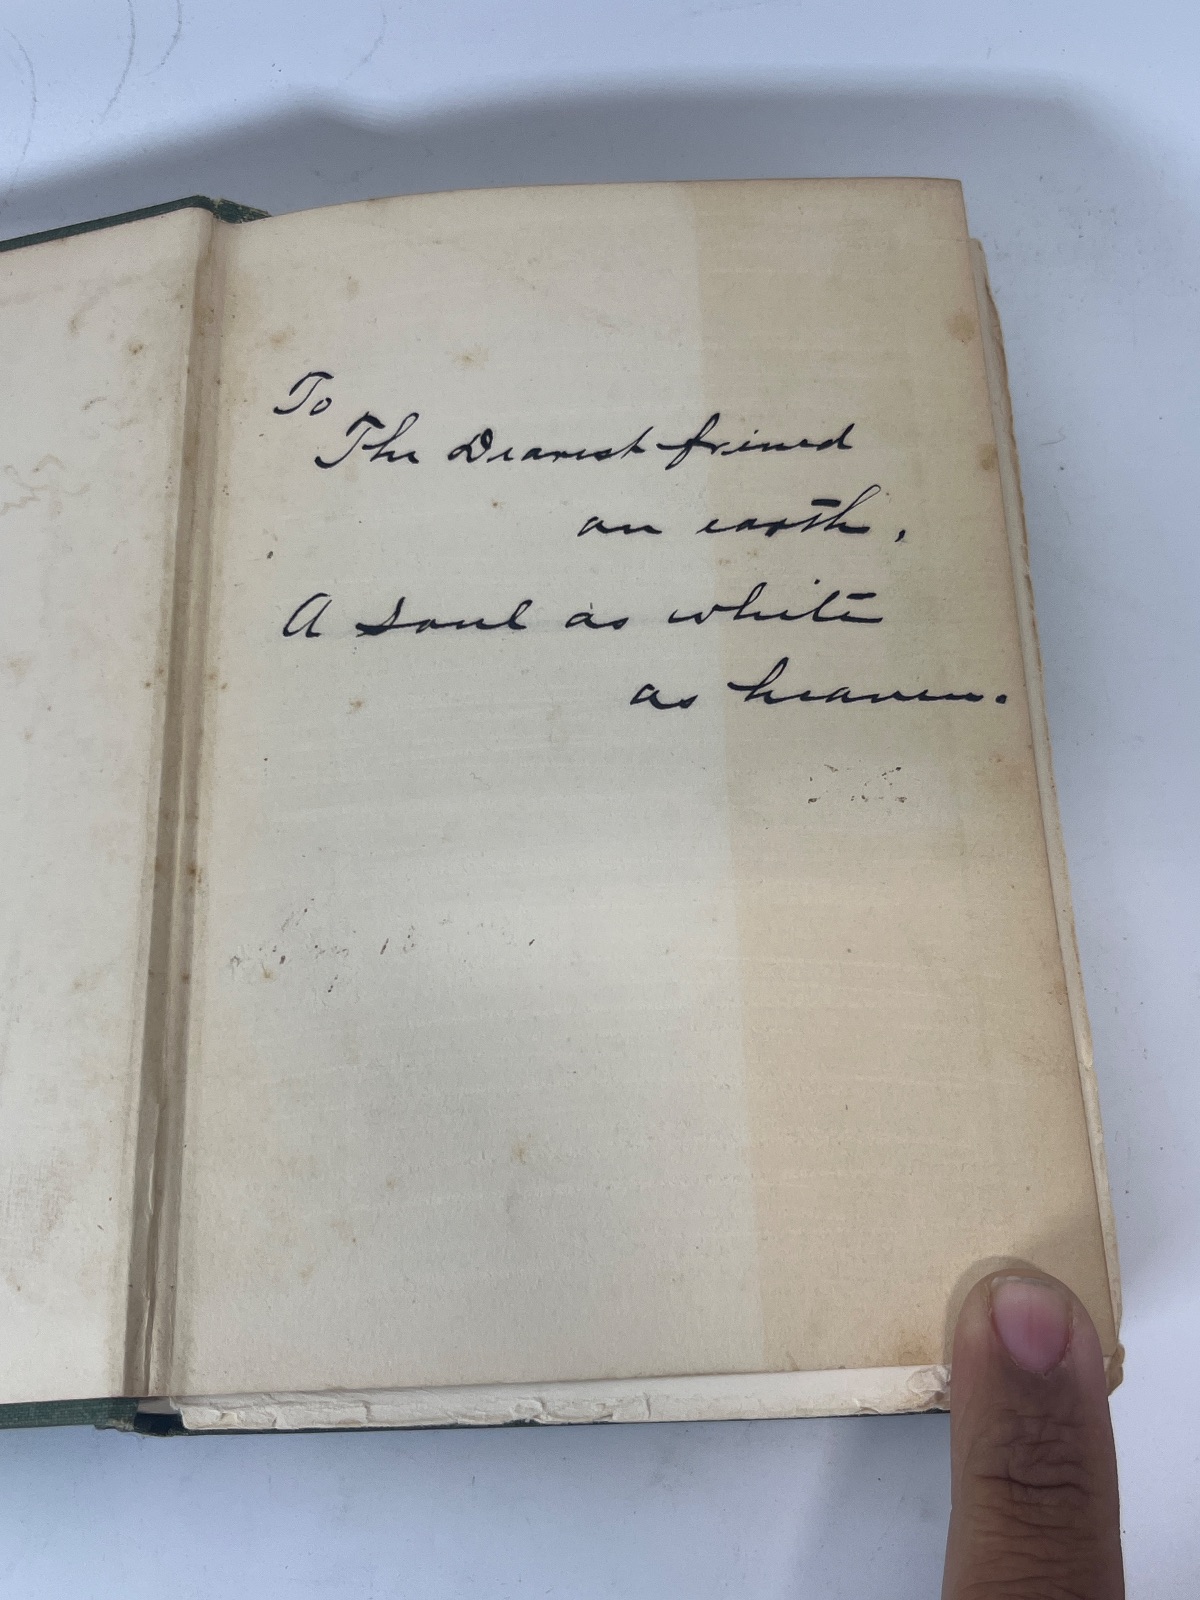 To
The Dearest friend
on earth,
A soul as white
as heaven.